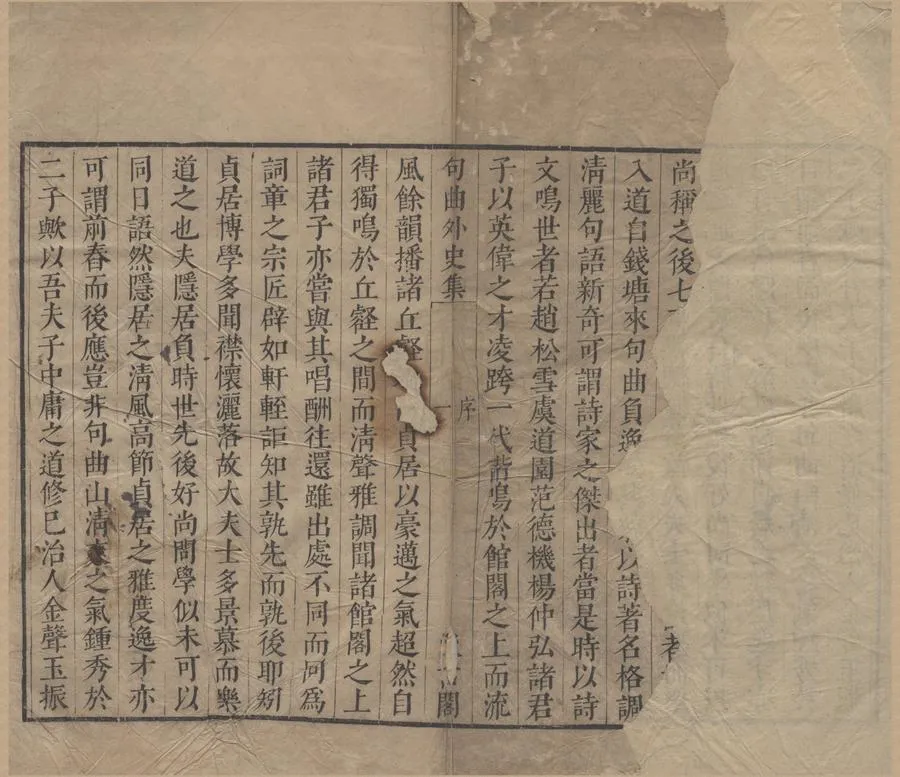 尚稱之後七
入道自錢塘來句曲負逸以詩著名格調
清麗句語新奇可謂詩家之傑出者當是時以詩
文鳴世者若趙松雪虞道園范德機楊仲弘諸君
子以英偉之才凌跨一代諧鳴於館閣之上而流
句曲外史集 序 一 閣
風餘韻播諸丘壑貞居以豪邁之氣超然自
得獨鳴於丘壑之間而清聲雅調聞諸館閣之上
諸君子亦嘗與其唱酬往還雖出處不同而同為
詞章之宗匠辟如軒輊詎知其孰先而孰後耶矧
貞居博學多聞襟懷灑落故大夫士多景慕而樂
道之也夫隱居負時世先後好尚問學似未可以
同日語然隱居之清風高節貞居之雅度逸才亦
可謂前舂而後應豈非句曲山清之氣鍾秀於
二子歟以吾夫子中庸之道修已治人金聲玉振